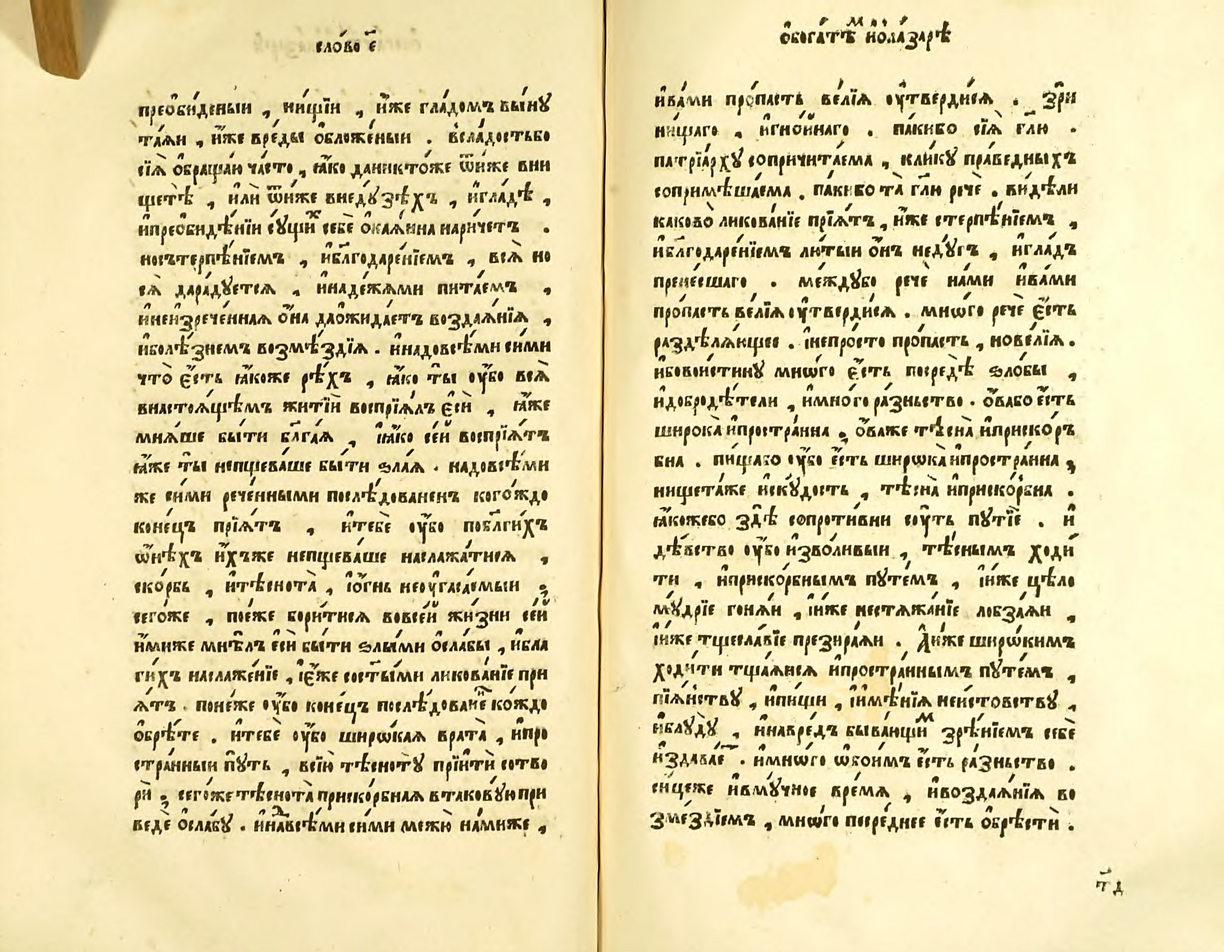 сло́во є҃
преѻби́деныи , ни́щїи , и҆́же гла́домъ вы́нꙋ
та́ѧи , и҆́же вреды̀ ѻ҆бложе́ныи . всла́достьбо
сїѧ̀ ѻ҆браща́ю ча́сто , ꙗ҆́ко даникто́же ѿни́же вни
щетѣ̀ , и҆лѝ ѿни́же внедꙋ́зѣхъ , и҆гла́дѣ ,
и҆преѻби́дѣнїи сꙋ́щїих себѐ ѻ҆каѧ́нна нарича́етъ .
носътерпѣ́нїемъ , и҆блгодаре́нїемъ , всѧ̀ но
сѧ̀ дара́дꙋетсѧ , и҆наде́жѧми пита́емъ ,
и҆неизрече́ннаѧ ѻ҆́на даожида́етъ возда́ѧнїѧ ,
и҆болѣ́знемъ возмѣ́здїѧ . и҆надовсѣ́ми си́ми
что̀ є҆́сть ꙗ҆́коже рѣ́хъ , ꙗ҆́ко ты̀ ᲂу҆́бо всѧ̀
внастоѧ́щѣмъ житїѝ воспрїѧ́лъ є҆сѝ , ꙗ҆́же
мнѧ́ше бы́ти блга́ѧ , и҆ꙗ҆́ко се́й воспрїѧ́тъ
ꙗ҆́же ты̀ непщева́ше бы́ти ѕла́ѧ . надовсѣ́ми
же си́ми рече́нными послѣ́дованенъ кого́ждо
коне́цъ прїѧ́тъ , и҆тебѐ ᲂу҆́бо побл҃ги́хъ
ѻ҆нѣ́хъ и҆́хъже непщева́ше наслажа́тисѧ ,
ско́рбь , и҆тѣснота̀ , і҆ѻ҆́гнь неоугаса́емыи ;
сего́же , поє́же бори́тисѧ вовсе́й жи́зни се́й
и҆́миже мнѣ́лъ є҆сѝ бы́ти ѕлы́ми ѻ҆сла́бы , и҆бла
ги́хъ наслаже́нїе , і҆є҆́же состы́ми ликова́нїе при
ѧ́тъ . поне́же ᲂу҆́бо коне́цъ послѣ́дованїе ко́ждо
ѻ҆брѣ́те . и҆тебѐ ᲂу҆́бо широ́каѧ врата̀ , и҆про
стра́нныи пꙋ́ть , всїю̀ тѣснотꙋ̀ прїитѝ сотво
рѝ ; сего́же тѣснота̀ приско́рбнаѧ втакову́ю при
ведѐ ѻ҆сла́бꙋ . и҆надвсѣ́ми си́ми межю̀ на́миже ,
ѻ҆бога́тѣм и҆ѻ҆ла́зарѣ
и҆ва́ми про́пасть ве́лїѧ ᲂу҆тверди́сѧ . зрѝ
ни́щаго , и҆гно́йнаго . па́кибо сїѧ̀ гл҃ю .
патрїа́рхꙋ сопричита́ема , кли́кꙋ пра́ведныхъ
сопримѣша́ема . па́кибо та̀ гл҃ю речѐ . ви́дѣли
каково̀ ликова́нїе прїѧ́тъ , и҆́же стерпѣ́нїемъ ,
и҆блгодаре́нїемъ лю́тыи ѻ҆́нъ неду́гъ , и҆гла́дъ
прене́сшаго . междꙋ́бо речѐ на́ми и҆ва́ми
про́пасть ве́лїѧ ᲂу҆тверди́сѧ . мно́го речѐ є҆́сть
раздѣлѧ́ющее . і҆непро́сто про́пасть , нове́лїѧ .
и҆бовои́стинꙋ мно́го є҆́сть посредѣ̀ ѕло́бы ,
и҆добродѣ́тели , и҆мно́го ра́зньство . ѻ҆́вабо є҆́сть
широка̀ и҆простра́нна , ѻ҆́важе тѣсна̀ и҆приско́р
бна . пи́щабо ᲂу҆́бо є҆́сть широка̀ и҆простра́нна ;
нищета́же и҆ску́дость , тѣсна̀ и҆приско́рбна .
ꙗ҆́кожебо здѣ̀ сопроти́вни со́уть пꙋтїѐ . и҆
дѣ́вство ᲂу҆́бо и҆зво́ливыи , тѣ́снымъ ходи́
ти , и҆приско́рбнымъ пꙋте́мъ , і҆и҆́же цѣло
мꙋ́дрїе гонѧ́и , і҆и҆́же нестѧжа́нїе лобза́ѧи ,
і҆и҆́же тщесла́вїе презира́ѧи . А҆и҆́же широ́кимъ
ходи́ти тща́ѧисѧ и҆простра́ннымъ пꙋте́мъ ,
пїѧ́нствꙋ , и҆пи́щи , і҆и҆мѣ́нїѧ неи́стовствꙋ ,
и҆блу́дꙋ , и҆навре́дъ быва́ющим зрѣ́нїемъ себѐ
и҆здава́е . и҆мно́го ѻ҆бои́мъ є҆́сть ра́зньство .
си́цеже и҆вмꙋ́чное вре́мѧ , и҆возда́ѧнїѧ во
змезді́емъ , мно́го посре́днее є҆́сть ѻ҆брѣстѝ .
т҃д